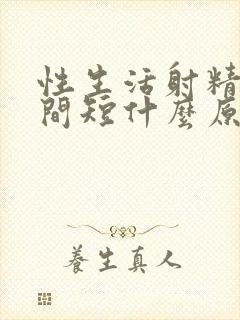 性生活射精
間短什麼原
養生真人